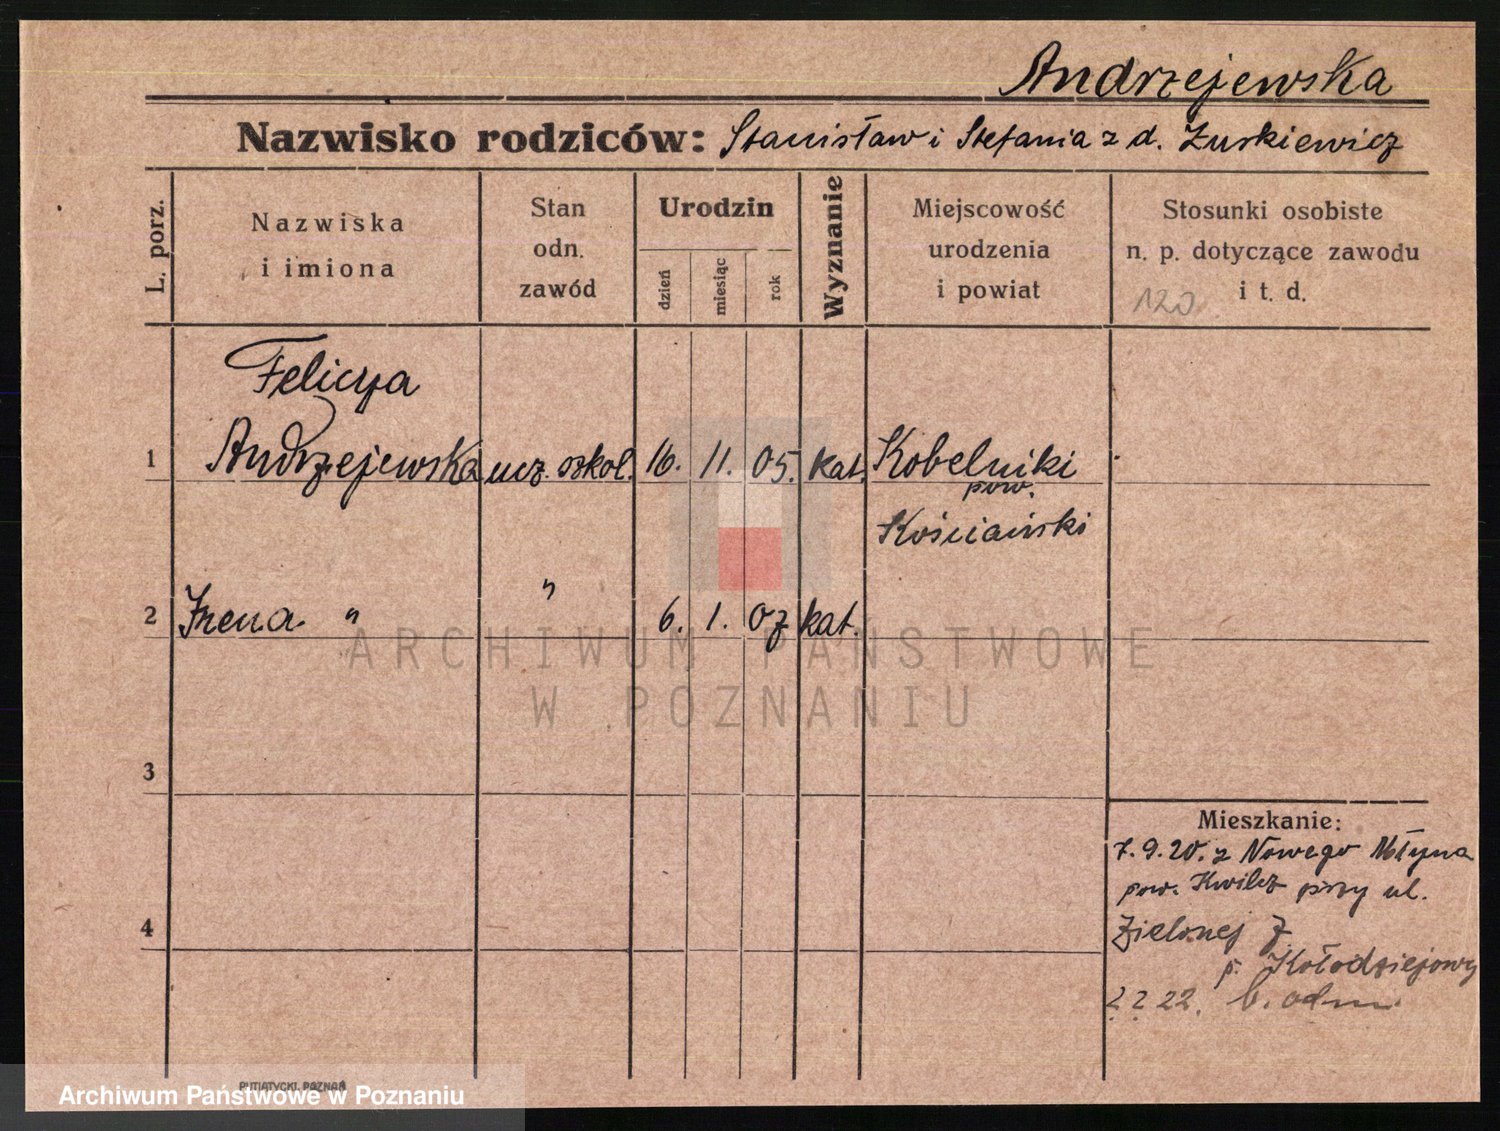 Andrzejewska
Nazwisko rodziców: Stanisław i Stefania z d. Żurkiewicz
L. porz.
Nazwiska
i imiona
Stan
odn.
zawód
Urodzin
dzień
miesiąc
rok
Wyznanie
Miejscowość
urodzenia
i powiat
Stosunki osobiste
n. p. dotyczące zawodu
i t. d.
120
Felicja
1 Andrzejewska ucz. szkol. 16. 11. 05. kat. Kobelniki
pow.
Kościański
2 Irena " " 6. 1. 07 kat.
ARCHIWUM PAŃSTWOWE
W POZNANIU
3
4
Mieszkanie:
7.9.20. z Nowego Młyna
pow. Kwilcz przy ul.
Zielonej 7
p. Kołodziejowy
2 2 22. b. odm.
PUTIATYCKI, POZNAŃ
Archiwum Państwowe w Poznaniu